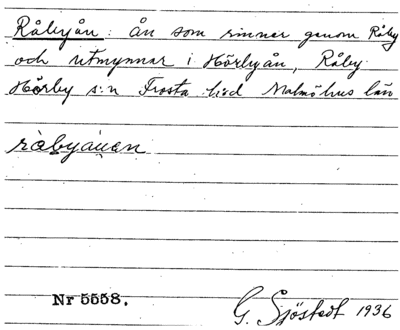 Råbyån: ån som rinner genom Råby
och utmynnar i Hörbyån, Råby
Hörby s:n Frosta h:d Malmöhus län
råbyånən
Nr 5558.
G. Sjöstedt 1936